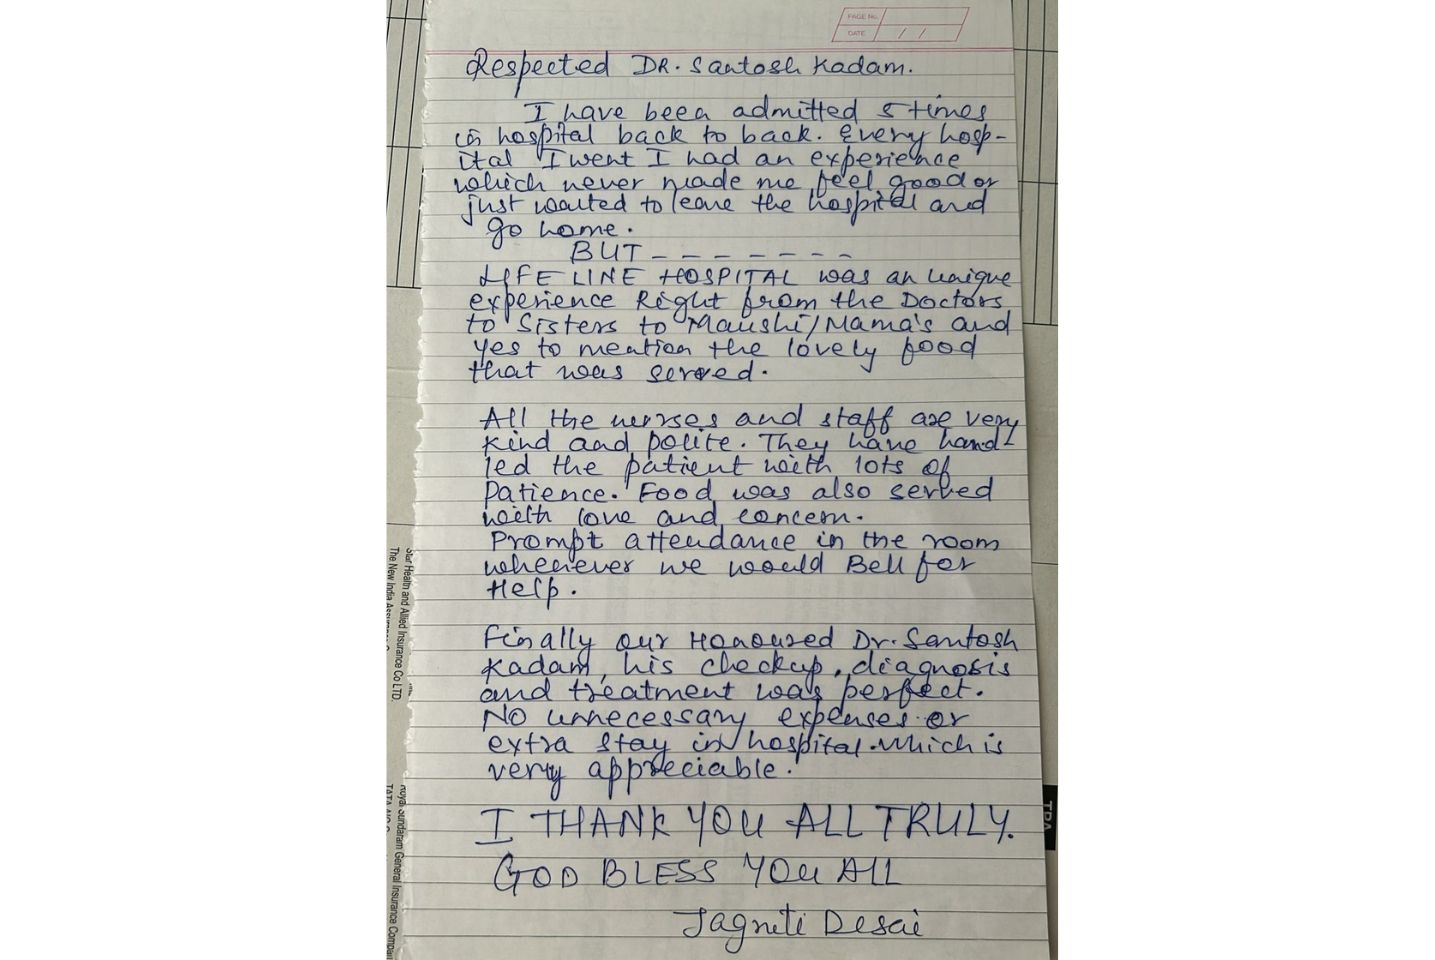 PAGE No.
DATE / /
Respected DR. Santosh Kadam.
I have been admitted 5 times
in hospital back to back. Every hosp-
ital I went I had an experience
which never made me feel good or
just wanted to leave the hospital and
go home.
BUT - - - - - - - -
LIFE LINE HOSPITAL was an unique
experience Right from the Doctors
to Sisters to Maushi/Mama's and
yes to mention the lovely food
that was served.
All the nurses and staff are very
kind and polite. They have hand-
led the patient with lots of
Patience. Food was also served
with love and concern.
Prompt attendance in the room
whenever we would Bell for
Help.
Finally our Honoured Dr. Santosh
Kadam, his checkup, diagnosis
and treatment was perfect.
No unnecessary expenses or
extra stay in hospital. which is
very appreciable.
I THANK YOU ALL TRULY.
GOD BLESS YOU ALL
Jagruti Desai
Star Health and Allied Insurance Co LTD.
The New India
Royal Sundaram General Insurance Compan
TPA